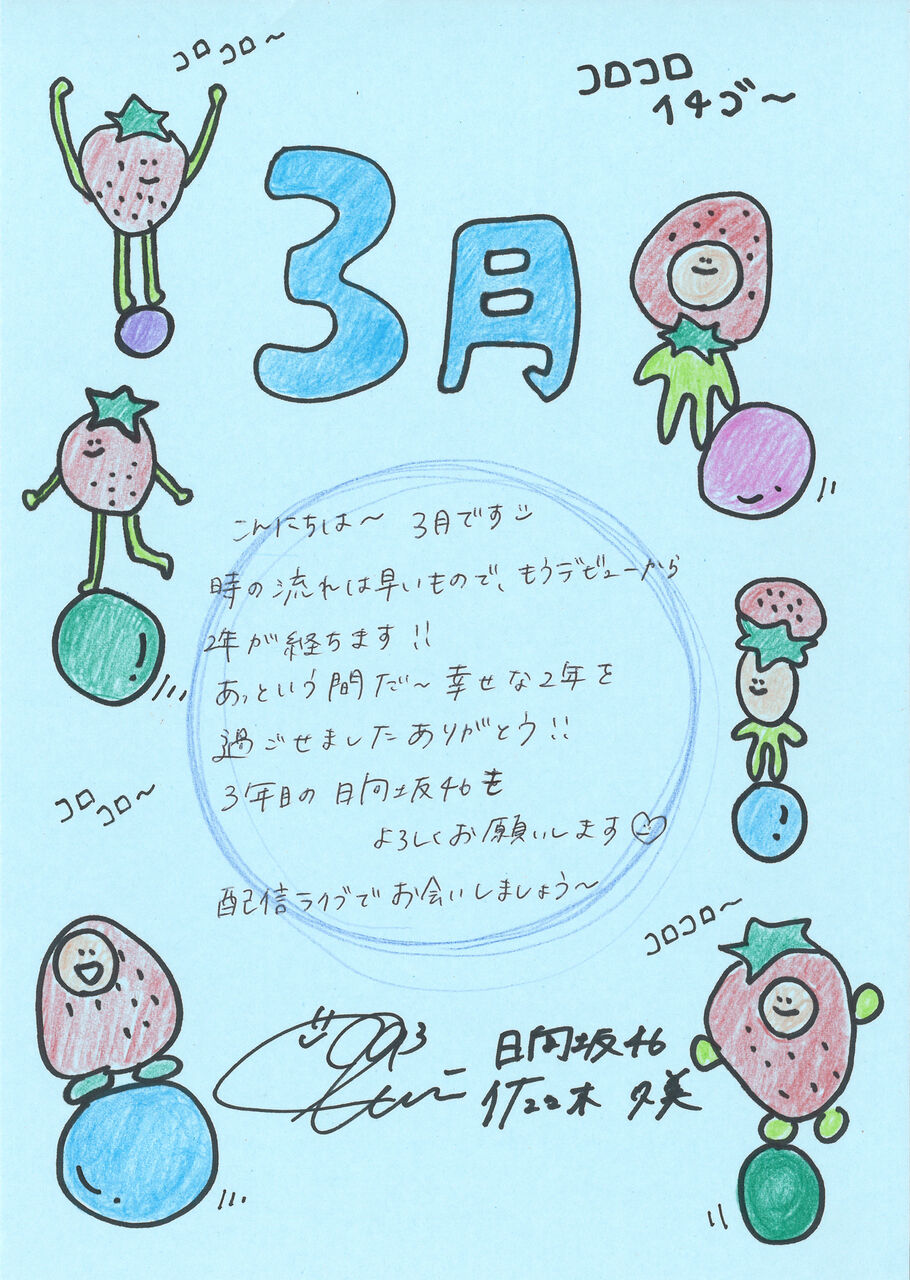 コロコロ〜
コロコロ
イチゴ〜
3月
こんにちは〜 3月です
時の流れは早いもので、もうデビューから
2年が経ちます!!
あっという間だ〜幸せな2年を
過ごせましたありがとう!!
3年目の日向坂46も
よろしくお願いします♡
配信ライブでお会いしましょう〜
コロコロ〜
コロコロ〜
日向坂46
佐々木久美